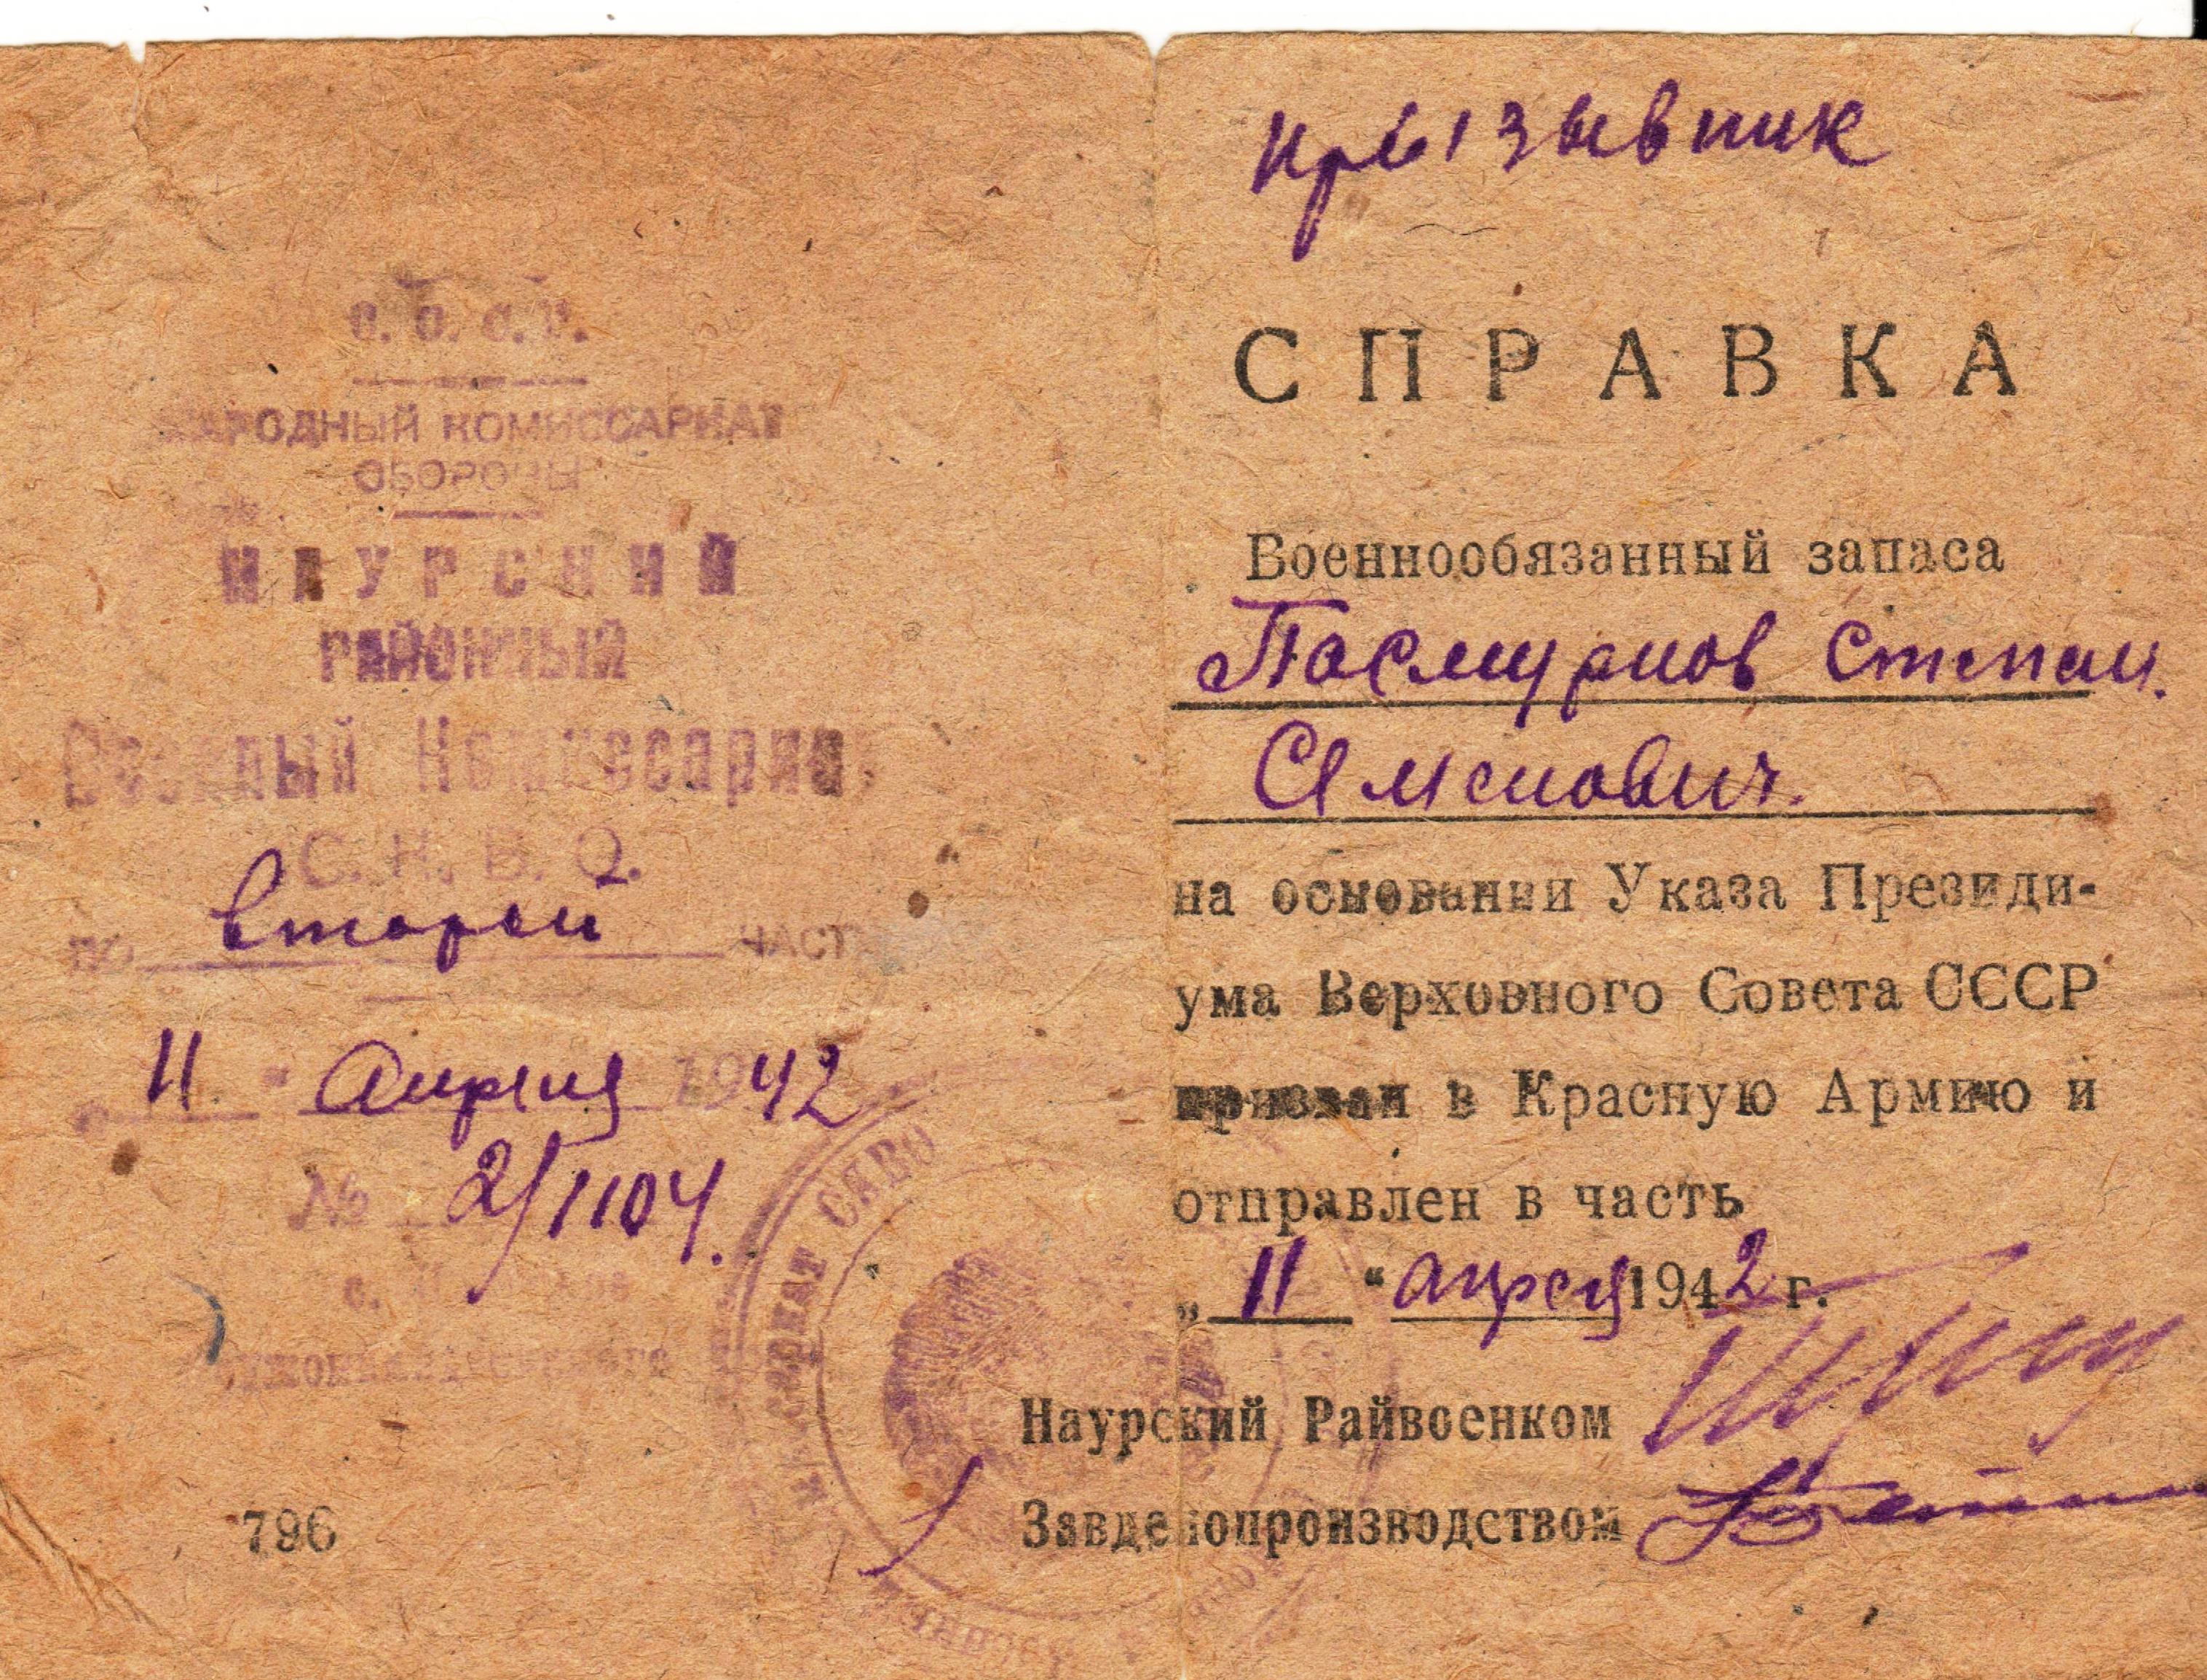 С. С. С. Р.
НАРОДНЫЙ КОМИССАРИАТ
ОБОРОНЫ
НАУРСКИЙ
РАЙОННЫЙ
Военный Комиссариат
С. К. В. О.
по второй части
„ 11 “ Апреля 1942
№ 2/1104.
796
прызывник
СПРАВКА
Военнообязанный запаса
Пасмурнов Степан.
Семенович.
на основании Указа Президи-
ума Верховного Совета СССР
призван в Красную Армию и
отправлен в часть
„ 11 “ апреля 1942 г.
Наурский Райвоенком
Завделопроизводством